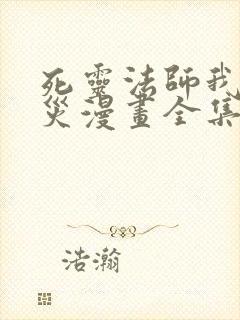 死靈法師我
災漫畫全集
浩瀚